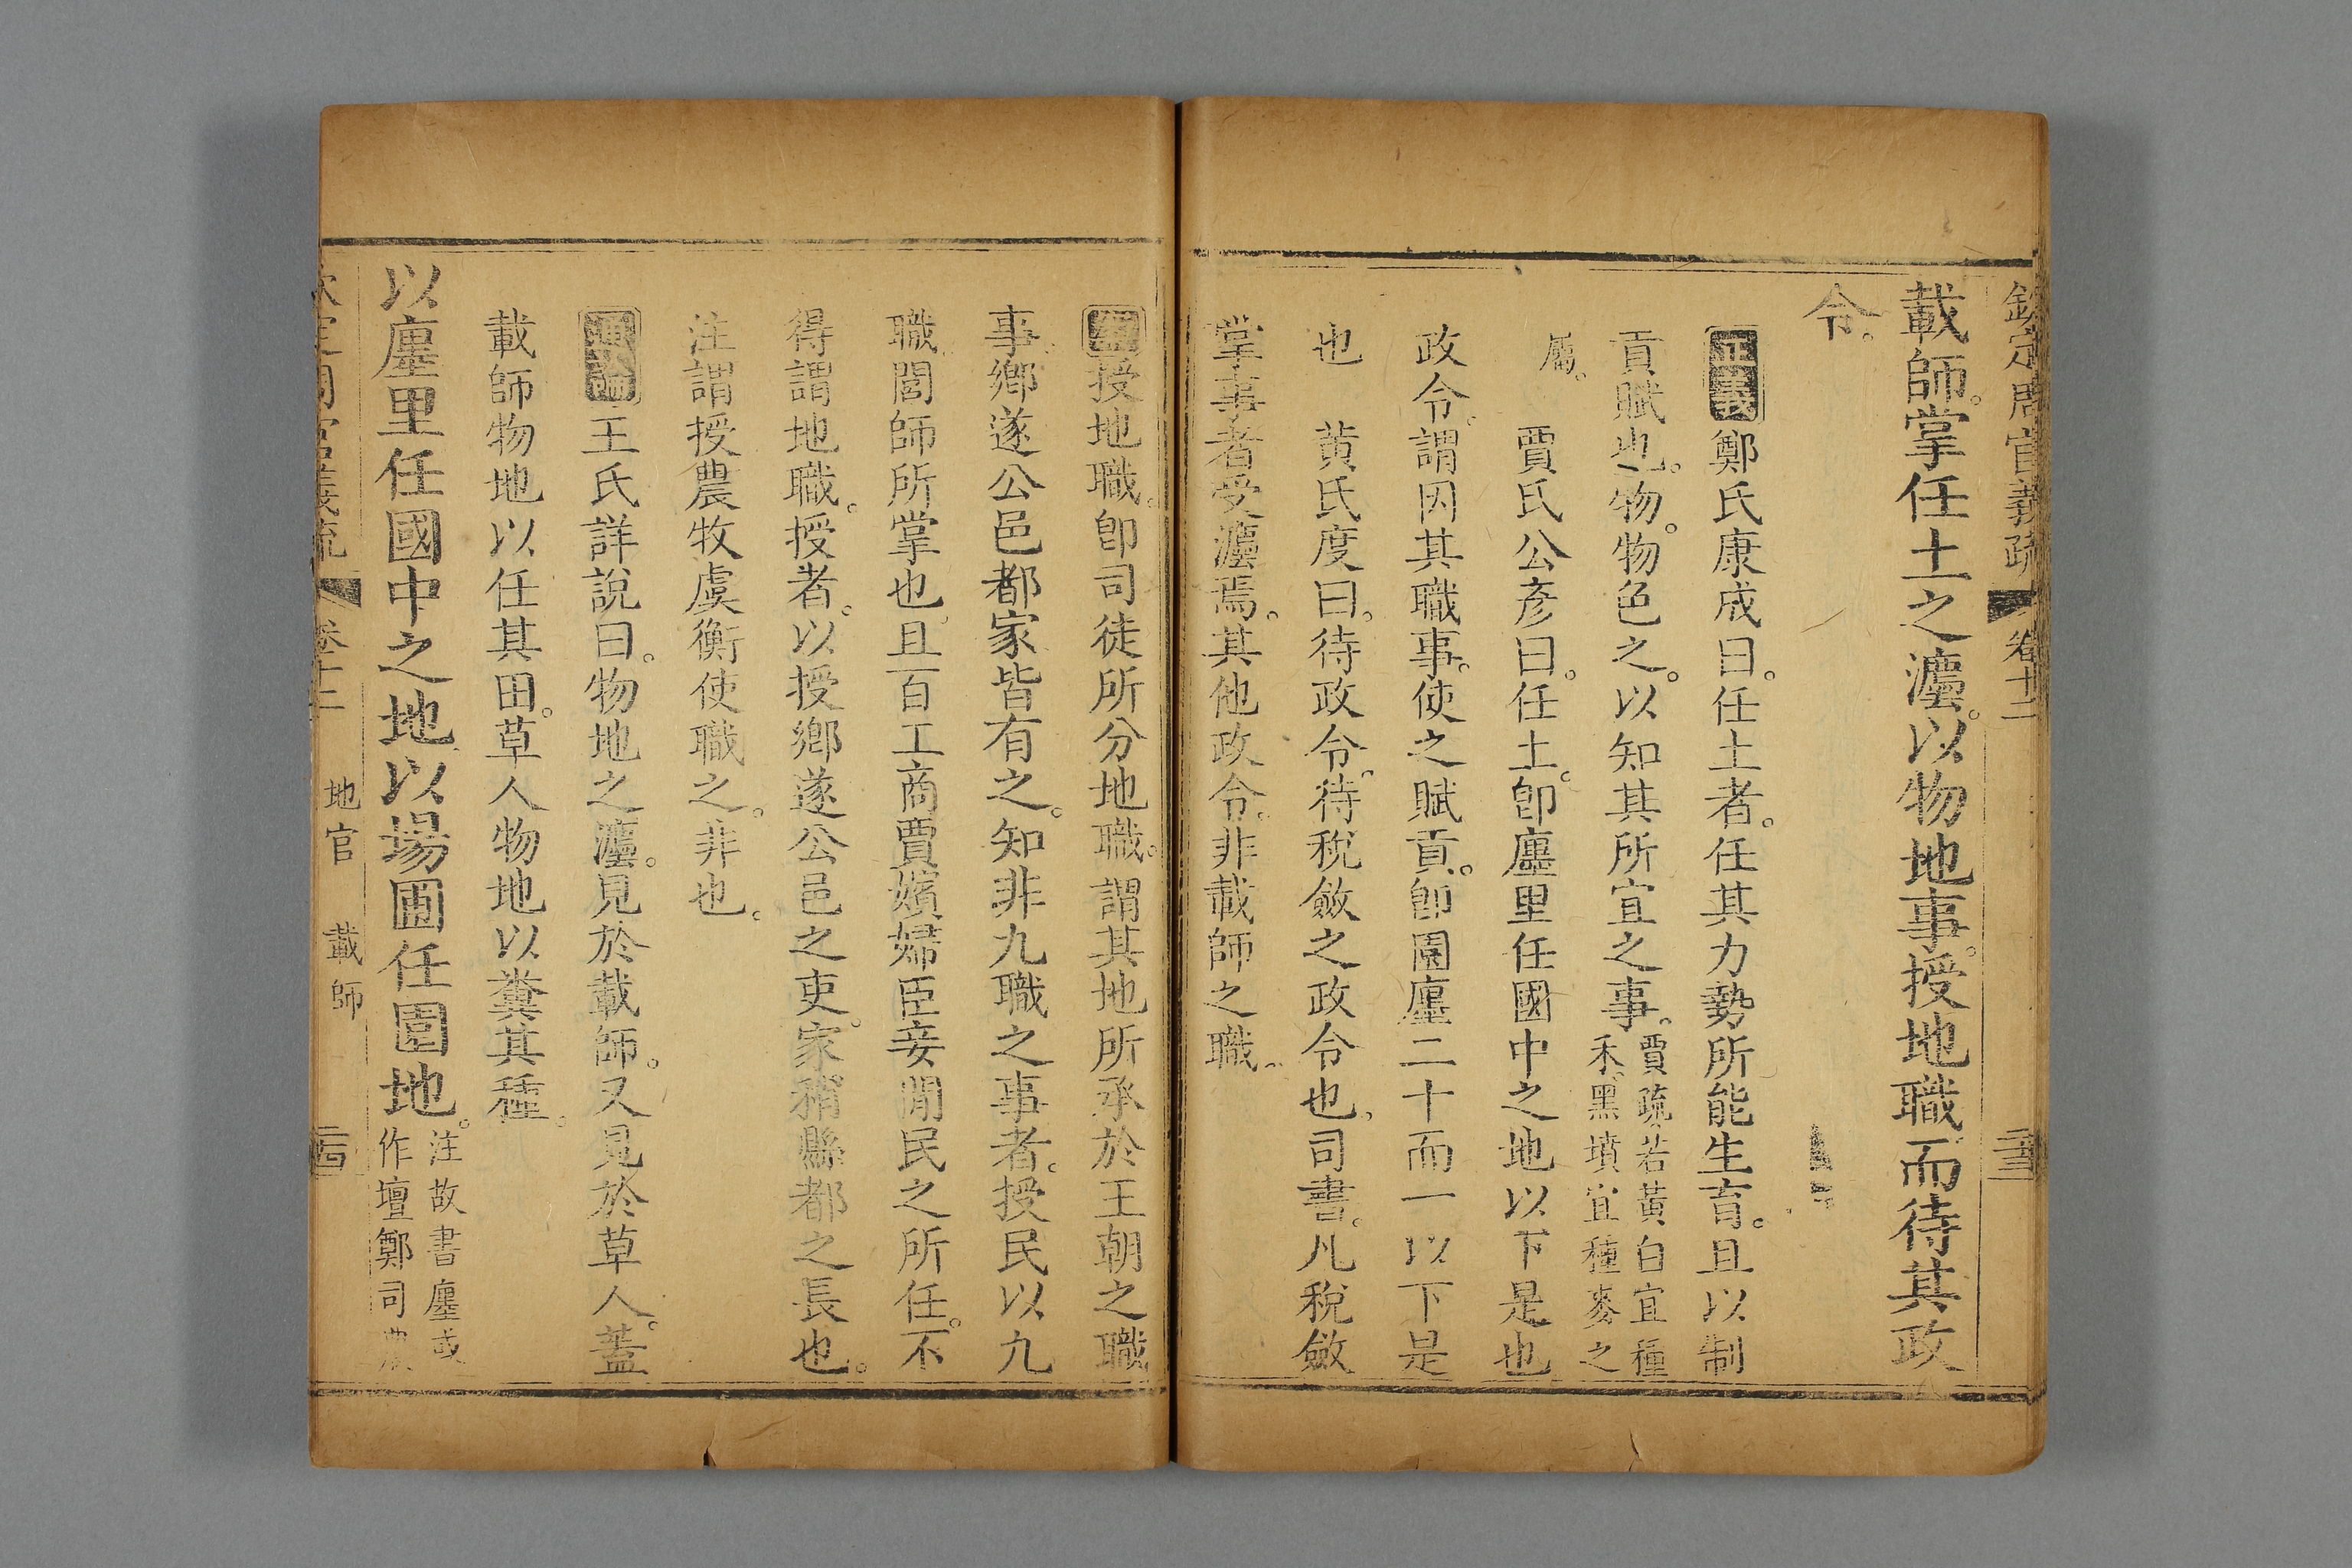 欽定周官義疏 卷十二
載師。掌任土之灋。以物地事。授地職。而待其政
令。
正義鄭氏康成曰。任土者。任其力勢所能生育。且以制
貢賦也。物。物色之。以知其所宜之事。賈疏若黃白宜種
禾。黑墳宜種麥之
屬。賈氏公彥曰。任土。卽廛里任國中之地以下是也
政令。謂因其職事。使之賦貢。卽園廛二十而一以下是
也 黃氏度曰。待政令。待稅斂之政令也。司書。凡稅斂
掌事者受灋焉。其他政令。非載師之職。
案授地職。卽司徒所分地職。謂其地所承於王朝之職
事。鄉遂公邑都家皆有之。知非九職之事者。授民以九
職。閭師所掌也。且百工商賈嬪婦臣妾閒民之所任。不
得謂地職。授者。以授鄉遂公邑之吏。家稍縣都之長也。
注謂授農牧虞衡使職之。非也。
通論王氏詳說曰。物地之灋。見於載師。又見於草人。蓋
載師物地以任其田。草人物地以糞其種。
以廛里任國中之地。以場圃任園地。注故書廛或
作壇鄭司農
欽定周官義疏 卷十二 地官 載師